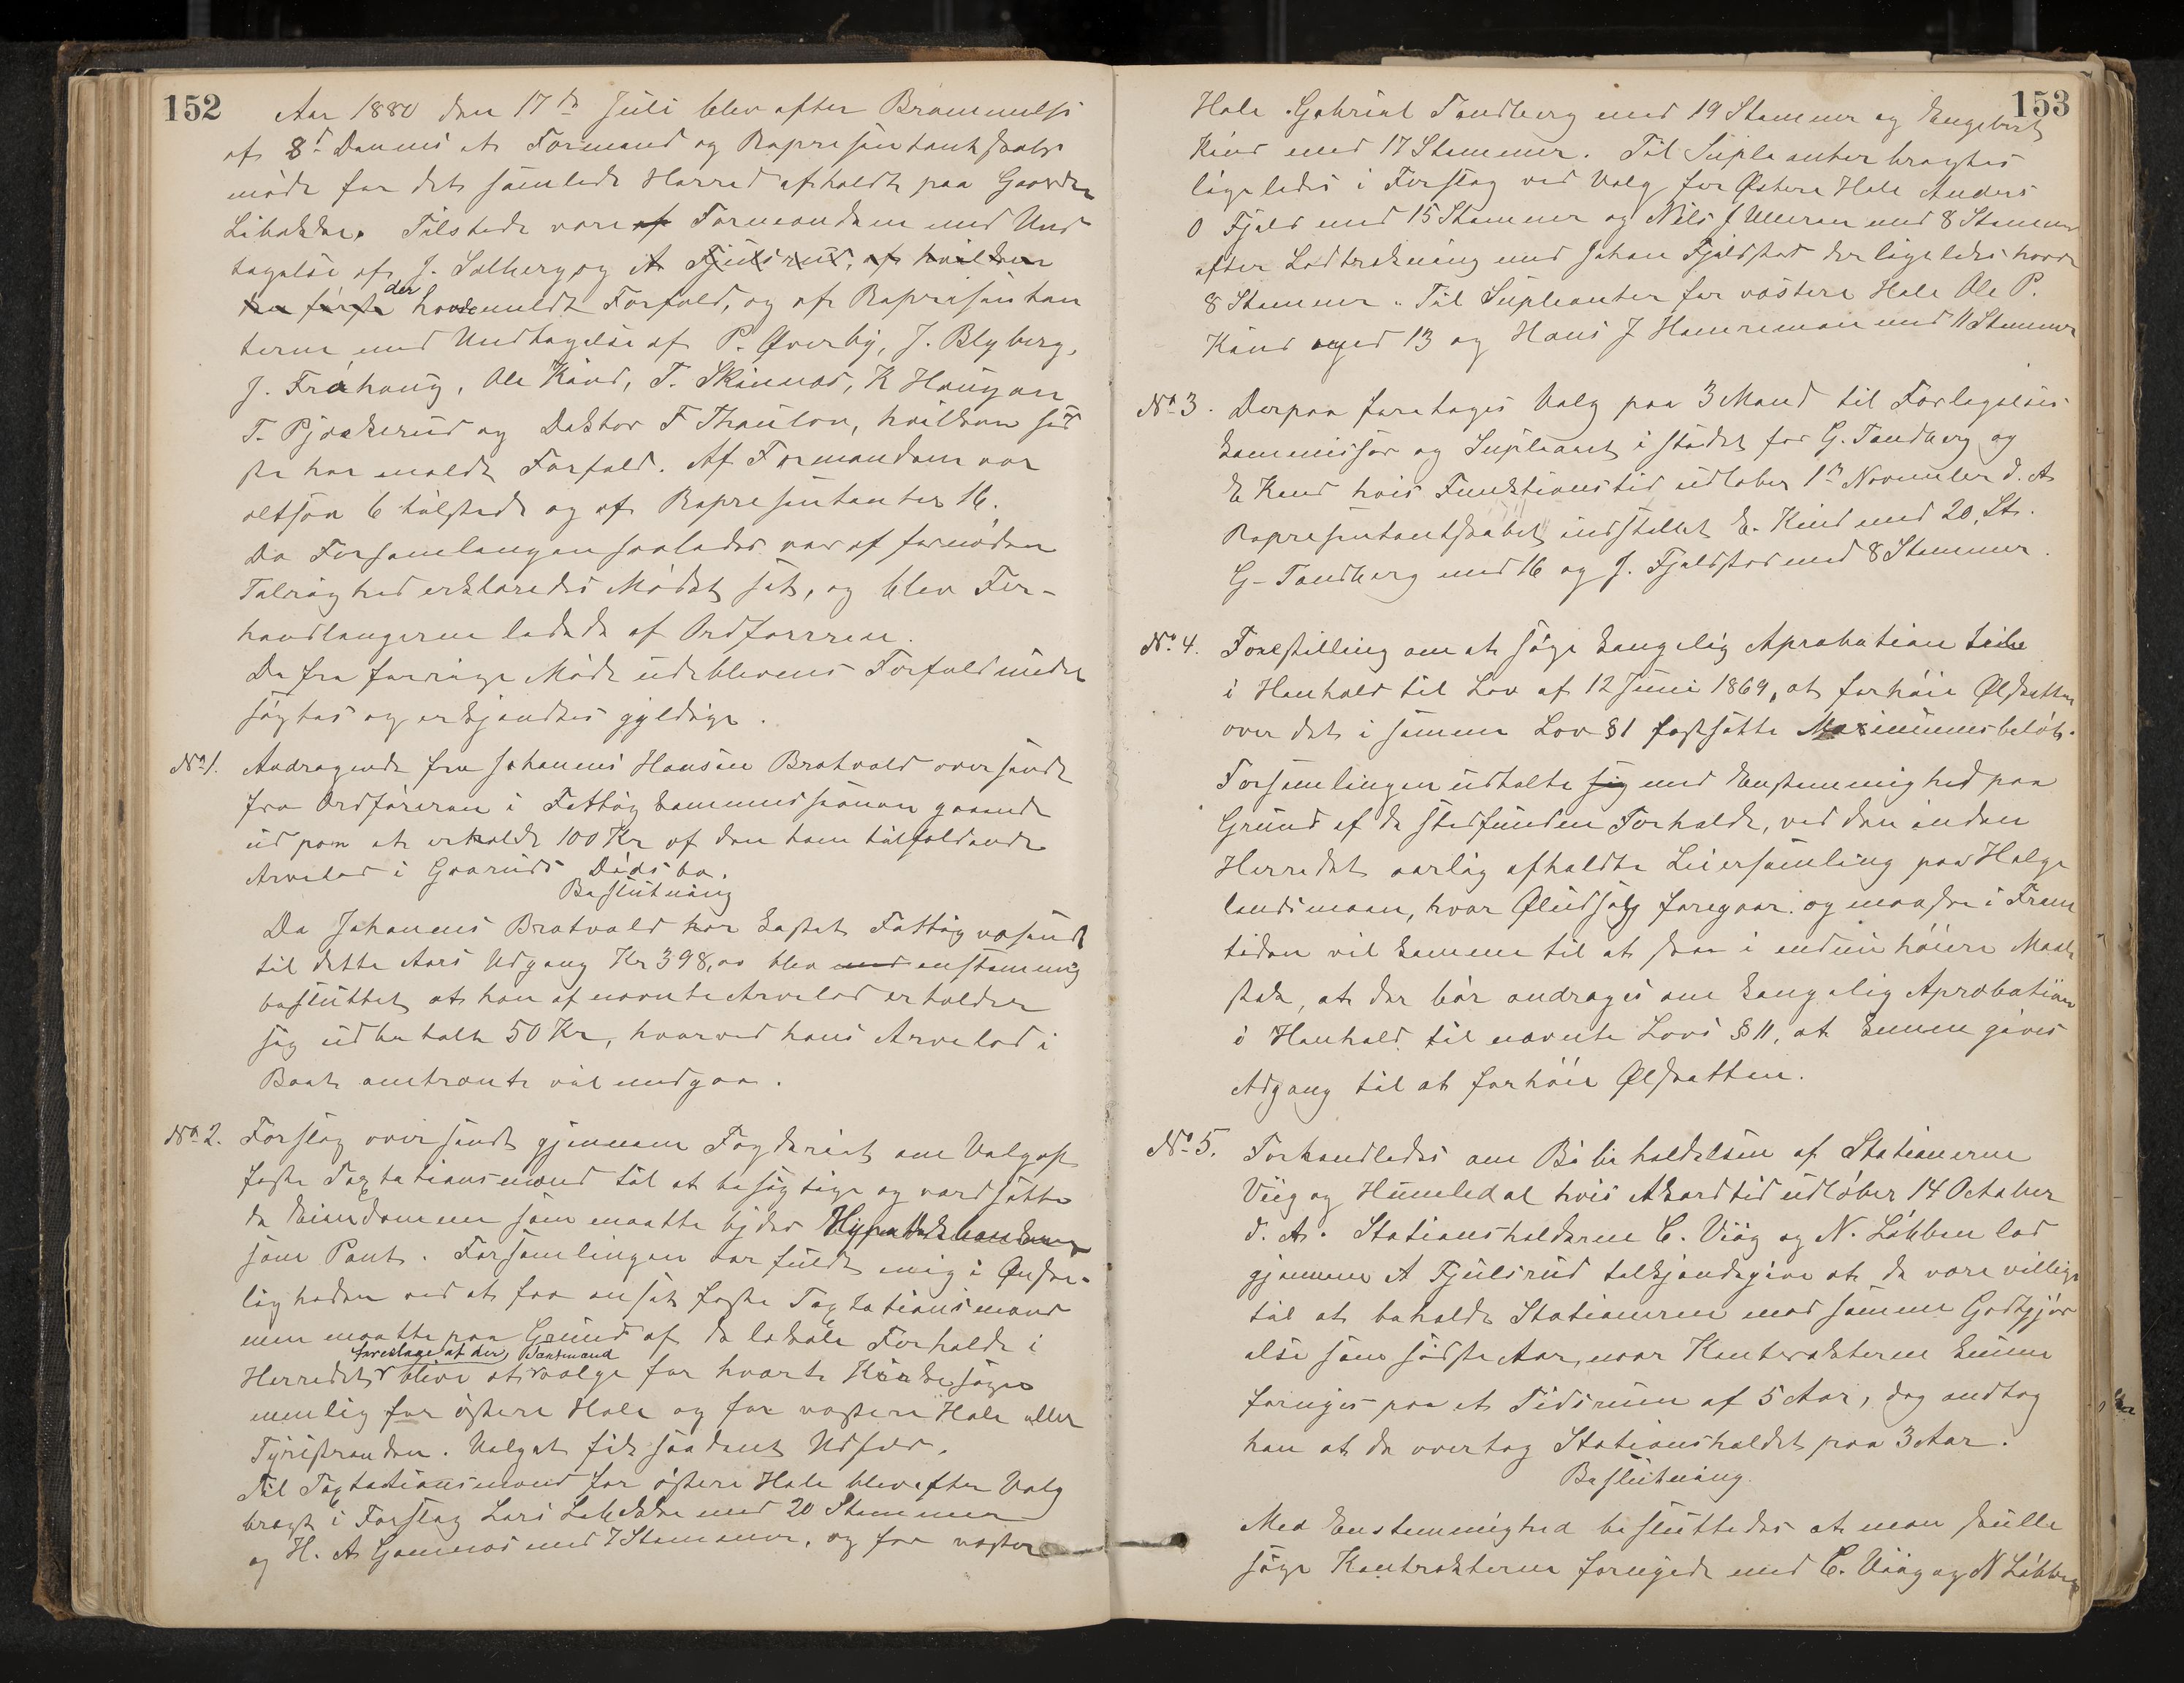 152
Aar 1880 den 17de Juli blev efter Berammelse
af 8de Dennes et Formand og Repræsentantskabs
møde for det samlede Herred afholdt paa Gaarden
Libakke. Tilstede vare af Formændene med Und
tagelse af J. Solberg og A Fjulsrud, af hvilken
den første der havde meldt Forfald, og af Repræsentan
terne med Undtagelse af P. Øverby, J. Blyberg,
J. Fråhaug, Ole Kind, T. Skinnes, K Haugen
T. Pjåkerud og Doktor F Thaulow, hvilken sid
ste har meldt Forfald. Af Formændene var
altsaa 6 tilstede og af Repræsentanter 16.
Da Forsamlangen saaledes var af fornøden
Talrighed erklæredes Mødet sat, og blev For-
handlangerne ledede af Ordføreren.
De fra forrige Møde udeblevens Forfald under
søgtes og erkjendtes gyldige.
No 1. Andragende fra Johannes Hansen Bratvold oversendt
fra Ordføreren i Fattigkommissionen gaaende
ud paa at erholde 100 Kr af den ham tilfaldende
Arvelod i Gaaruds Dødsbo.
Beslutning
Da Johannes Bratvold har kostet Fattigvæsenet
til dette Aars Udgang Kr 398,00 blev med enstemmig
besluttet at han af nævnte Arvelod erholder
sig udbetalt 50 Kr, hvorved hans Arvelod i
Boet omtrent vil medgaa.
No 2. Forslag oversendt gjennem Fogderiet om Valg af
faste Taxtationsmænd til at besigtige og værdsætte
de Eiendomme som maatte bydes Hypothekbanken
som Pant. Forsamlingen var fuldt enig i Ønske-
ligheden ved at faa ansat faste Taxtationsmænd
men maatte paa Grund af de lokale Forholde i
Herredet foreslaae at der blive at vælge Taxtmænd for hvert Kirkesogn
nemlig for østere Hole og for vestere Hole eller
Tyristranden. Valget fik saadant Udfald.
Til Taxtationsmænd for østere Hole blev efter Valg
bragt i Forslag Lars Libakke med 20 Stemmer
og H. A Gomnæs med 7 Stemmer, og for vestere
153
Hole Gabriel Tandberg med 19 Stemmer og Engebret
Kind med 17 Stemmer. Til Supleanter bragtes
ligeledes i Forslag ved Valg for Østere Hole Anders
O Fjeld med 15 Stemmer og Nils J Ulleren med 8 Stemmer
efter Lodtrekning med Johan Fjeldstad der ligeledes havde
8 Stemmer. Til Supleanter for vestere Hole Ole P.
Kind med 13 og Hans J Hamremoen med 11 Stemmer
No 3. Derpaa foretoges Valg paa 3 Mænd til Forligelses
kommissær og Supleant i stedet for G. Tandberg og
E Kind hvis Funktionstid udløber 1ste November d. A
Repræsentantskabet indstillet E. Kind med 20 St.
G- Tandberg med 16 og J. Fjeldstad med 8 Stemmer.
No 4. Forestilling om at søge kongelig Aprobation
i Henhold til Lov af 12 Juni 1869, at forhøie Ølskatten
over det i samme Lov §1 fastsatte Maximumsbeløb.
Forsamlingen udtalte sig med Enstemmighed paa
Grund af de stedfunden Forholde, ved den inden
Herredet aarlig afholdte Leiersamling paa Helge
landsmoen, hvor Øludsalg foregaar og maaske i Frem
tiden vil komme til at skee i endnu høiere Maale
stok, at der bør andrages om kongelig Aprobation
i Henhold til nævnte Lovs § 11, at kunne gives
Adgang til at forhøie Ølskatten.
No 5. Forhandledes om Bibeholdelsen af Stationerne
Viig og Humledal hvis Akordtid udløber 14 October
d. A. Stationsholderne C. Viig og N. Løbben lod
gjennem A Fjulsrud tilkjendegive at de vare villige
til at beholde Stationerne mod samme Godtgjør
else som sidste Aar, naar Kontrakterne kunne
fornyes paa et Tidsrum af 5 Aar, dog antog
han at de overtog Stationsholdet paa 3 Aar.
Beslutning.
Med Enstemmighed besluttedes at man skulle
søge Kontrakterne fornyede med C. Viig og N Løbben